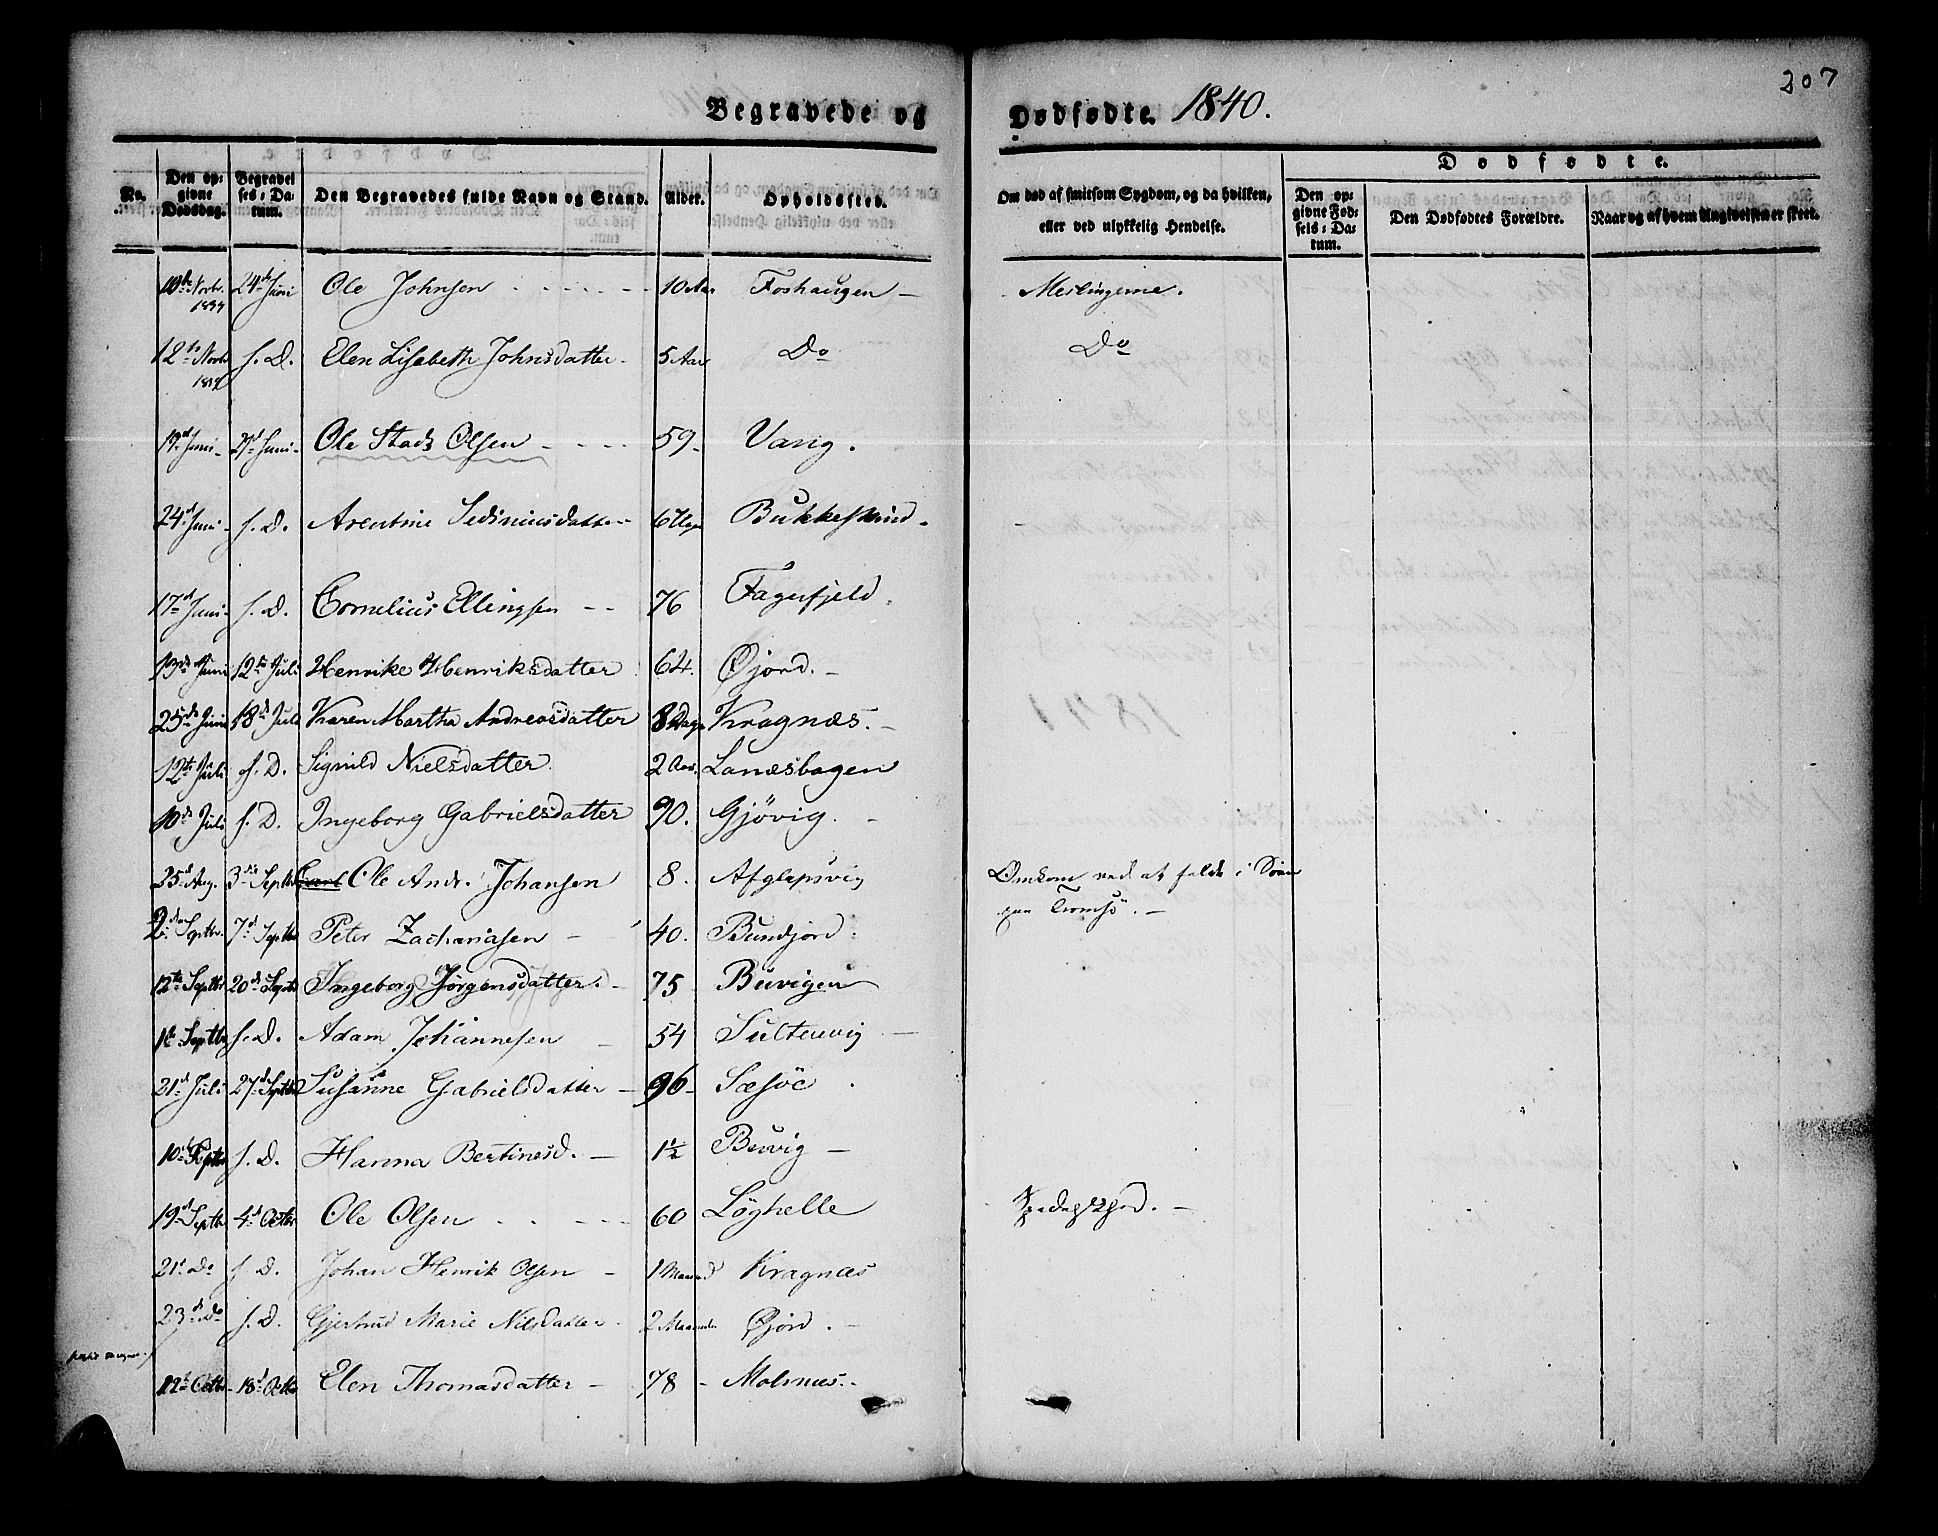 207
Begravede og Dødfødte. 1840.
Dødfødte.
No. Den opgivne Dødsdag. Begravelses-Datum. Den Begravedes fulde Navn og Stand. Alder. Opholdssted. Om død af smitsom Sygdom, og da hvilken, eller ved ulykkelig Hendelse. Den opgivne Fødsels-Datum. Den Dødfødtes Forældre. Naar og af hvem Angivelsen er skeet.
10de Novbr. 1839 24de Juni Ole Johnsen 10 Aar Foshaugen Meslingerne.
12te Novbr 1839 s. D. Elen Lisabeth Johnsdatter 5 Aar Do Do
19d Juni 27d Juni Ole Stads Olsen 59 Varig.
24d Juni s. D. Arentine Sediniusdatter 6 Uger Bukkeskind.
17d Juni s. D. Cornelius Ellingsen 76 Fagerfjeld.
13de Juni 12te Juli Henrike Henriksdatter 64. Øjord.
25de Juni 18de Juli Karen Martha Andreasdatter 8 Dage Kragnæs.
12te Juli s. D. Signild Nielsdatter 2 Aar. Lanæsbagen
10de Juli s. D. Ingeborg Gabrielsdatter 90. Gjövig.
25d Aug. 3die Septbr Ole Andr. Johansen 8. Afglapsvig Omkom ved at falde i Søen
paa Tromsö.
2den Septbr. 7d Septbr Peter Zachariasen 40. Bundjord
12te Septbr 20d Septbr Ingeborg Jörgensdatter. 75 Buvigen
1te Septbr s. D. Adam Johannesen 54 Sultenvig
21d Juli 27d Septbr Susanne Gabrielsdatter 96 Sæsöe
10d Septbr s. D. Hanna Bertinesd. 1½ Buvig
19d Septbr 4d Octbr Ole Olsen 60 Löghelle Spedalskhed.
21d Do s. D. Johan Henrik Olsen 1 Maaned Kragnæs
23d Do s. D. Gjertrud Marie Nilsdatter 2 Maaneder Øjord.
12te Octbr 18d Octbr Elen Thomasdatter 78 Malsnæs.